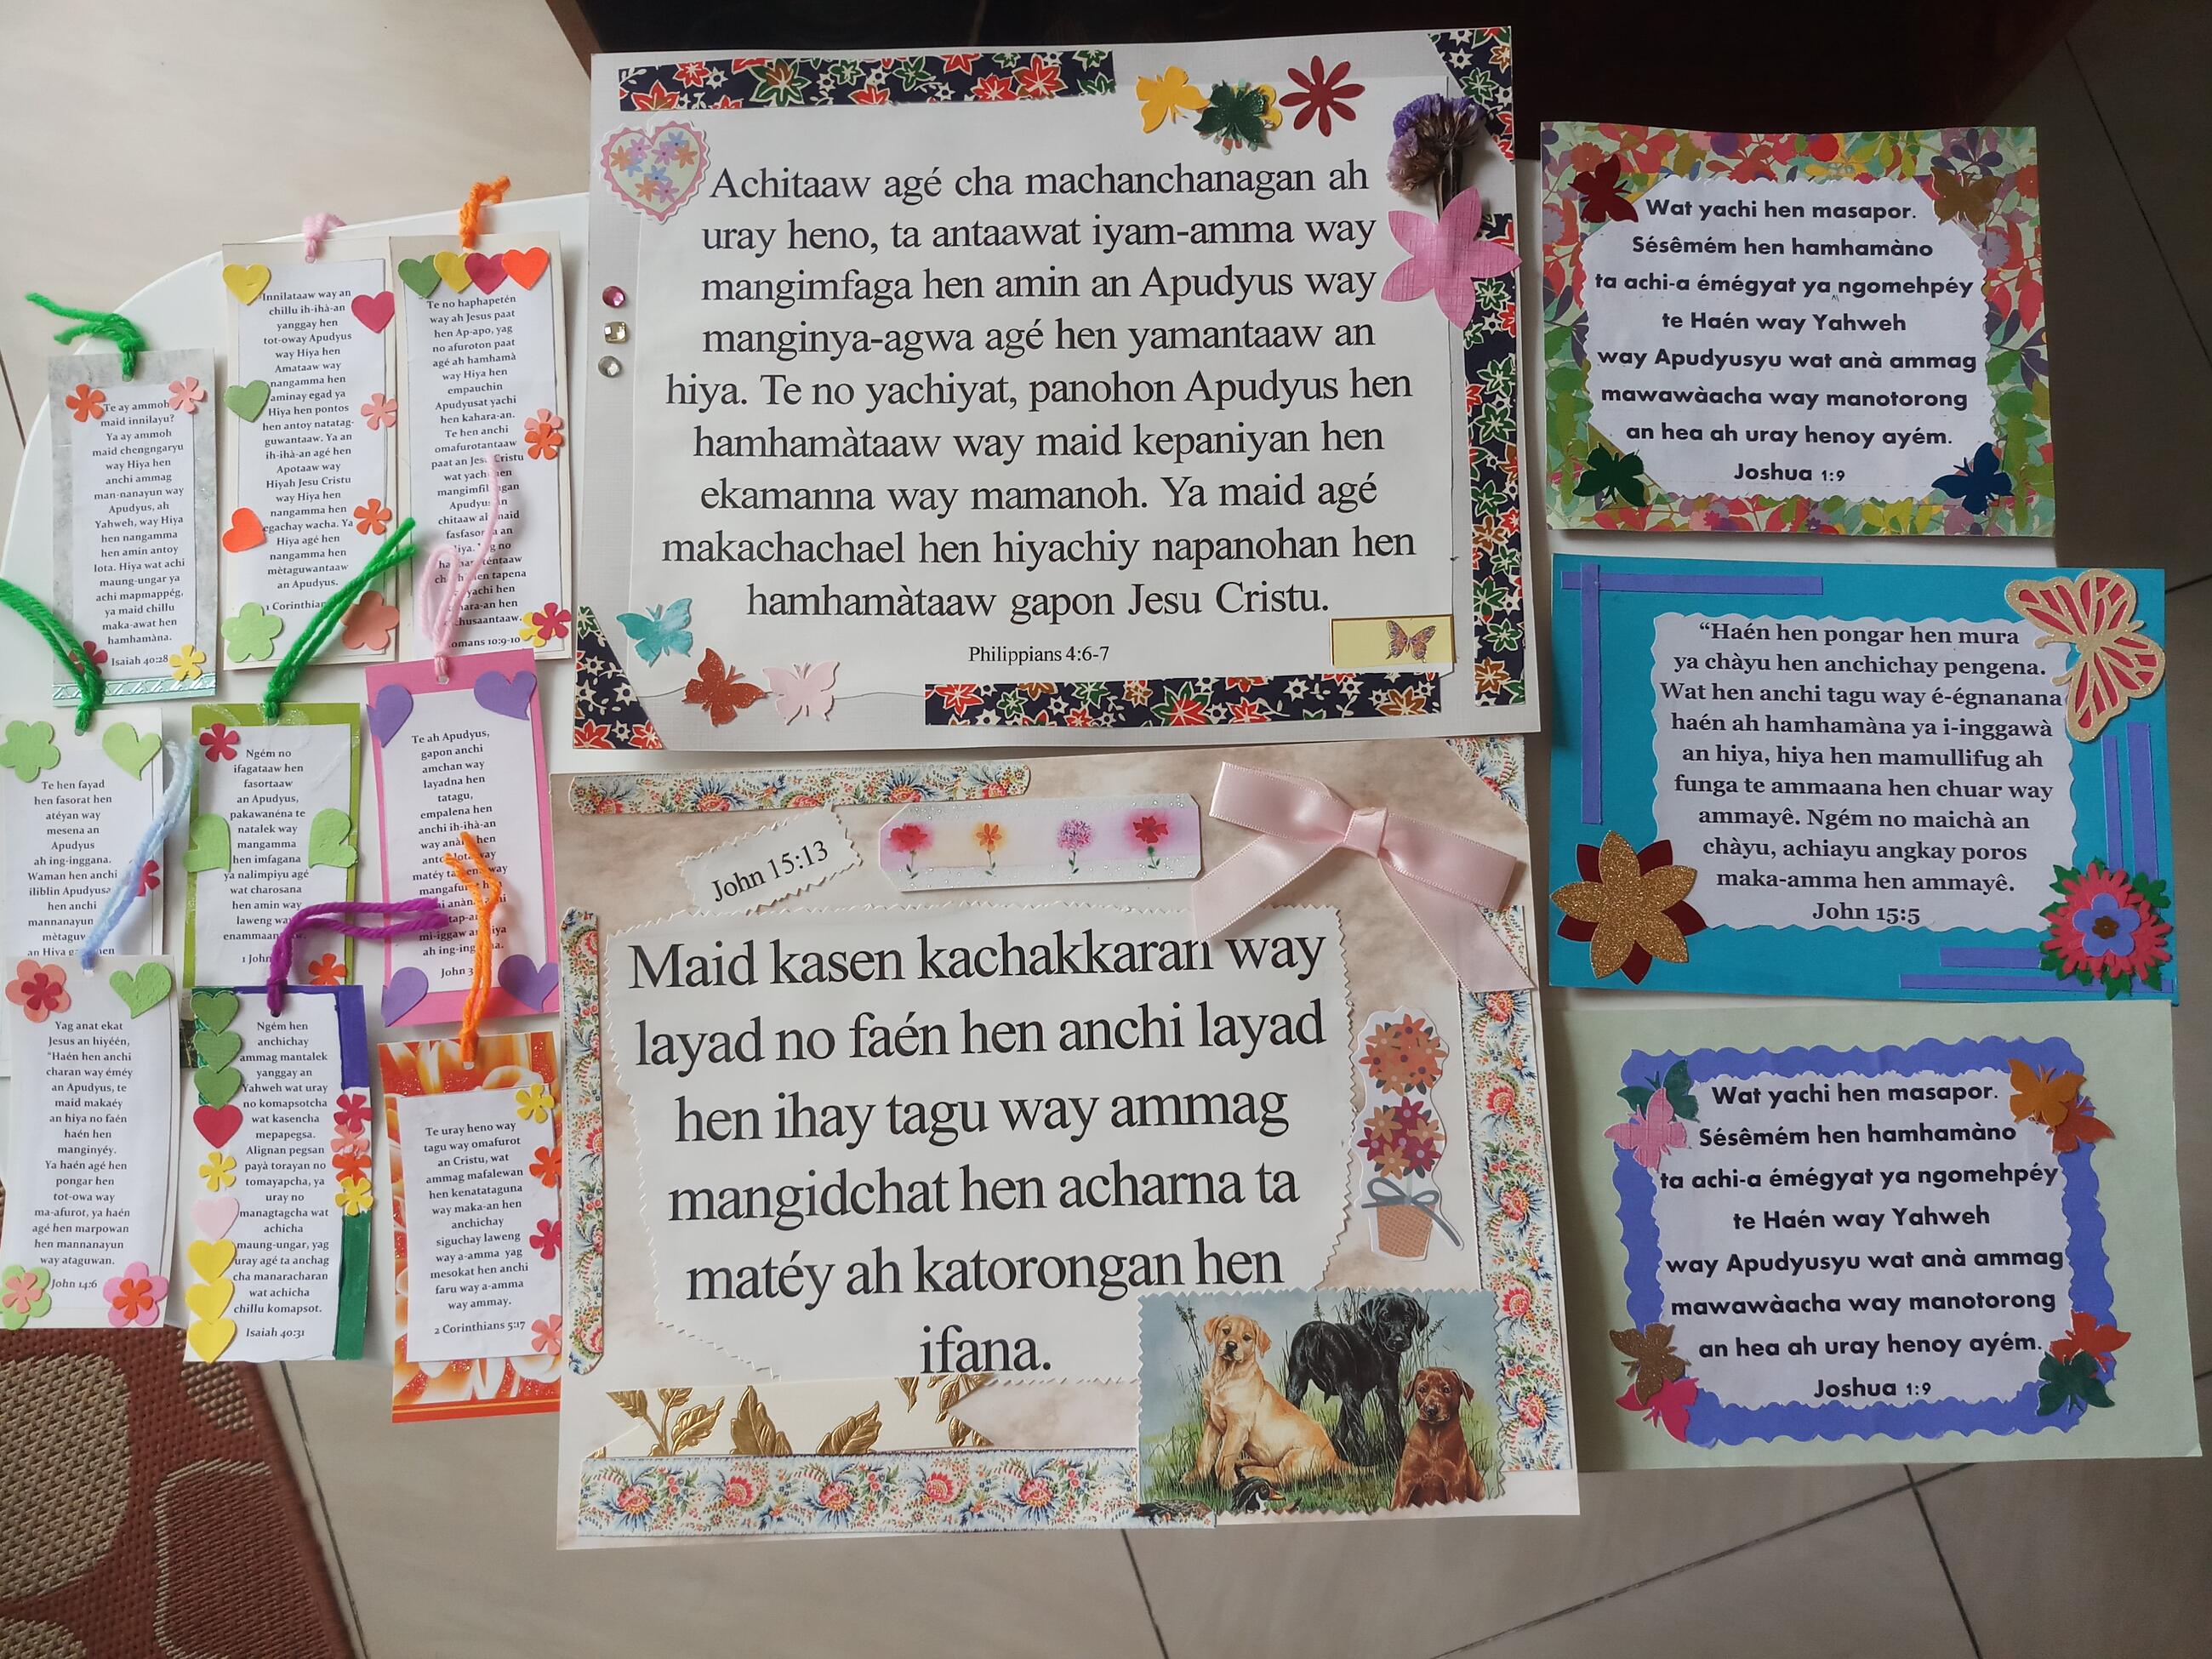 Te ay ammoh
maid innilayu?
Ya ay ammoh
maid chengngaryu
way Hiya hen
anchi ammag
man-nanayun way
Apudyus, ah
Yahweh, way Hiya
hen nangamma
hen amin antoy
lota. Hiya wat achi
maung-ungar ya
achi mapmappég,
ya maid chillu
maka-awat hen
hamhamàna.
Isaiah 40:28
Innilataaw way an
chillu ih-ihà-an
yanggay hen
tot-oway Apudyus
way Hiya hen
Amataaw way
nangamma hen
aminay egad ya
Hiya hen pontos
hen antoy natatag-
guwantaaw. Ya an
ih-ihà-an agé hen
Apotaaw way
Hiyah Jesu Cristu
way Hiya hen
nangamma hen
egachay wacha. Ya
Hiya agé hen
nangamma hen
mètaguwantaaw
an Apudyus.
1 Corinthian
Te no haphapetén
way ah Jesus paat
hen Ap-apo, yag
no afuroton paat
agé ah hamhamà
way Hiya hen
empauchin
Apudyusat yachi
hen kahara-an.
Te hen anchi
omafurotantaaw
paat an Cristu
wat
Apudyus
chitaaw maid
an
no
hen tapena
yachi hen
hen
omans 10:9-10
Te hen fayad
hen fasorat hen
atéyan way
mesena an
Apudyus
ah ing-inggana.
Waman hen anchi
iliblin Apudyusa
hen anchi
mannanayun
an Hiya
Ngém no
ifagataaw hen
fasortaaw
an Apudyus,
pakawanéna te
natalek way
mangamma
hen imfagana
ya nalimpiyu agé
wat charosana
hen amin way
laweng
1 John
Te ah Apudyus,
gapon anchi
amchan way
layadna hen
tatagu,
empalena hen
anchi ih-ihà-an
way
way
matéy way
ah
John 3
Yag anat ekat
Jesus an hiyéén,
"Haén hen anchi
charan way éméy
an Apudyus, te
maid makaéy
an hiya no faén
haén hen
manginyéy.
Ya haén agé hen
pongar hen
tot-owa way
ma-afurot, ya haén
agé hen marpowan
hen mannanayun
way ataguwan.
John 14:6
Ngém hen
anchichay
ammag mantalek
yanggay an
Yahweh wat uray
no komapsotcha
wat kasencha
mepapegsa.
Alignan pegsan
payà torayan no
tomayapcha, ya
uray no
managtagcha wat
achicha
maung-ungar, yag
uray agé ta anchag
cha manaracharan
wat achicha
chillu komapsot.
Isaiah 40:31
Te uray heno way
tagu way omafurot
an Cristu, wat
ammag mafalewan
hen kenatataguna
way maka-an hen
anchichay
siguchay laweng
way a-amma yag
mesokat hen anchi
faru way a-amma
way ammay.
2 Corinthians 5:17
Achitaaw agé cha machanchanagan ah
uray heno, ta antaawat iyam-amma way
mangimfaga hen amin an Apudyus way
manginya-agwa agé hen yamantaaw an
hiya. Te no yachiyat, panohon Apudyus hen
hamhamàtaaw way maid kepaniyan hen
ekamanna way mamanoh. Ya maid agé
makachachael hen hiyachiy napanohan hen
hamhamàtaaw gapon Jesu Cristu.
Philippians 4:6-7
John 15:13
Maid kasen kachakkaran way
layad no faén hen anchi layad
hen ihay tagu way ammag
mangidchat hen acharna ta
matéy ah katorongan hen
ifana.
Wat yachi hen masapor.
Sésêmém hen hamhamàno
ta achi-a émégyat ya ngomehpéy
te Haén way Yahweh
way Apudyusyu wat anà ammag
mawawàacha way manotorong
an hea ah uray henoy ayém.
Joshua 1:9
"Haén hen pongar hen mura
ya chàyu hen anchichay pengena.
Wat hen anchi tagu way é-égnanana
haén ah hamhamàna ya i-inggawà
an hiya, hiya hen mamullifug ah
funga te ammaana hen chuar way
ammayê. Ngém no maichà an
chàyu, achiayu angkay poros
maka-amma hen ammayê.
John 15:5
Wat yachi hen masapor.
Sésêmém hen hamhamàno
ta achi-a émégyat ya ngomehpéy
te Haén way Yahweh
way Apudyusyu wat anà ammag
mawawàacha way manotorong
an hea ah uray henoy ayém.
Joshua 1:9